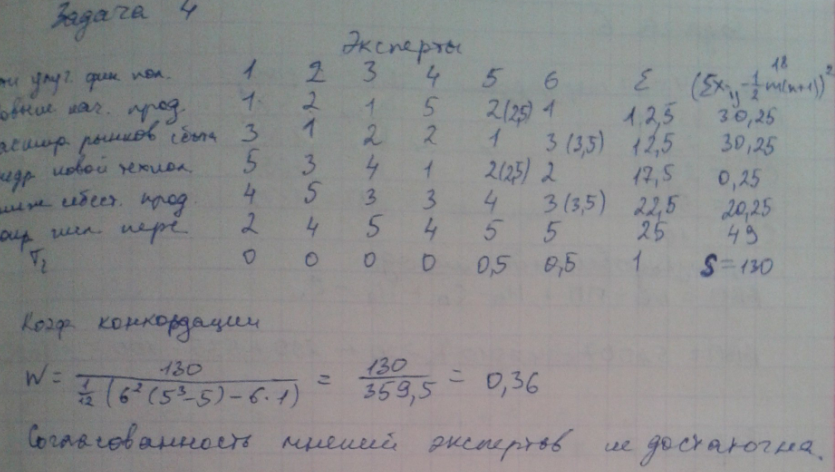 Задача 4
Эксперты
улуч. фин. пол. 1 2 3 4 5 6 Σ (Σxij - 1/2 m(n+1))² 18
кач. прод. 1 2 1 5 2(2,5) 1 12,5 30,25
рынков сбыта 3 1 2 2 1 3(3,5) 12,5 30,25
новой технол. 5 3 4 1 2(2,5) 2 17,5 0,25
себест. прод. 4 5 3 3 4 3(3,5) 22,5 20,25
2 4 5 4 5 5 25 49
0 0 0 0 0,5 0,5 1 S=130
Коэф. конкордации
W = 130 / 1/12 (6²(5³-5)-6·1) = 130 / 359,5 = 0,36
Согласованность мнений экспертов не достаточна.